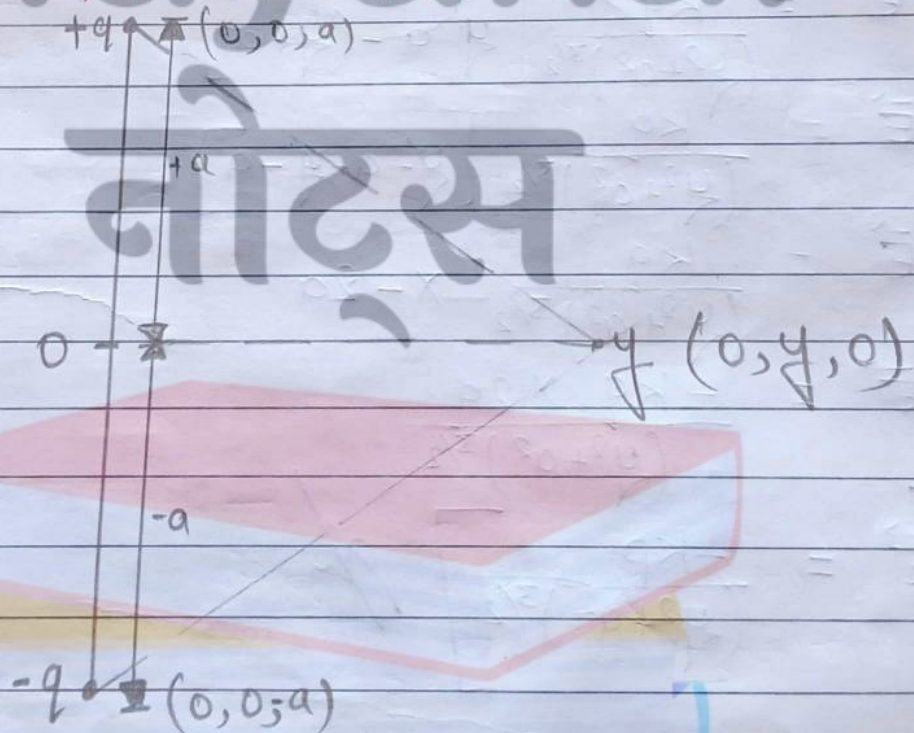 +q (0,0,a)
नोट्स
+a
0 y (0,y,0)
-a
-q (0,0,-a)